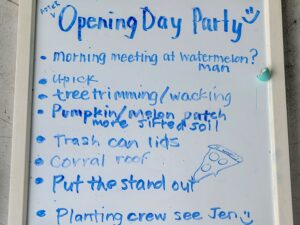 Opening Day Party
morning meeting at watermelon?
man
upick
tree trimming/wacking
Pumpkin/melon patch
more sifted soil
Trash can lids
Corral roof
Put the stand out
Planting crew see Jen